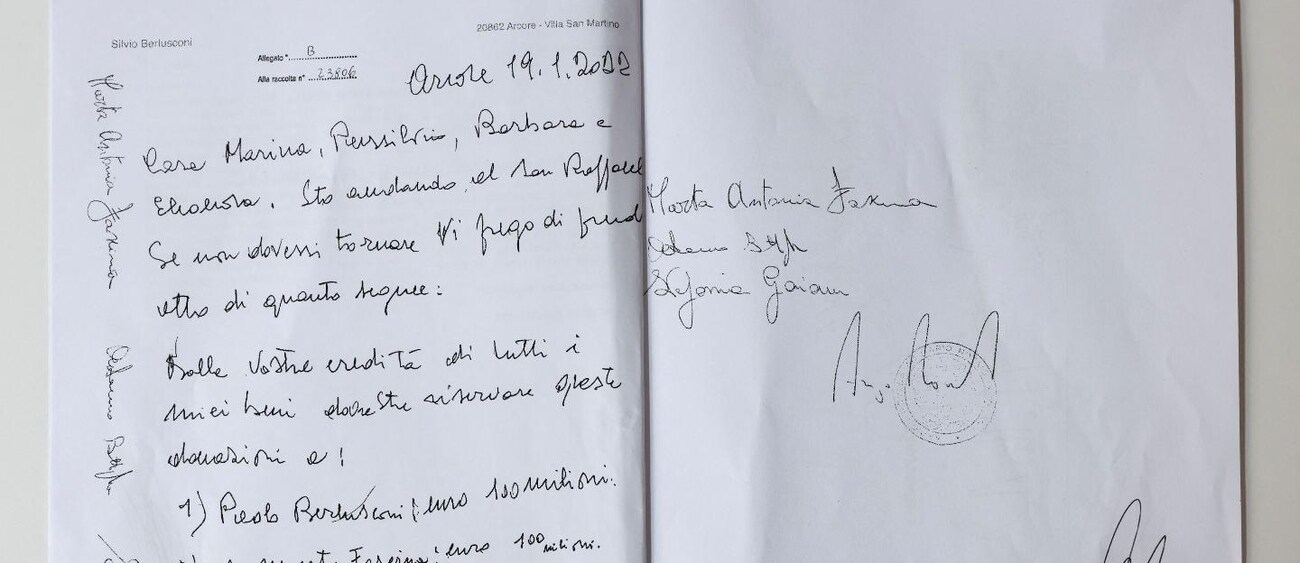 Silvio Berlusconi
20862 Arcore - Villa San Martino
Allegato " B
Alla raccolta n° 23806
Arcore 19.1.2022
Cara Marina, Piersilvio, Barbara e
Eleonora. Sto andando al San Raffaele
Se non dovessi tornare Vi prego di prend
atto di quanto segue:
Dalla Vostra eredità di tutti i
miei beni dovreste riservare queste
donazioni a:
1) Paolo Berlusconi: euro 100 milioni.
Fascina: euro 100 milioni.
Marta Antonia Fascina
Marta Antonia Fascina
Stefania